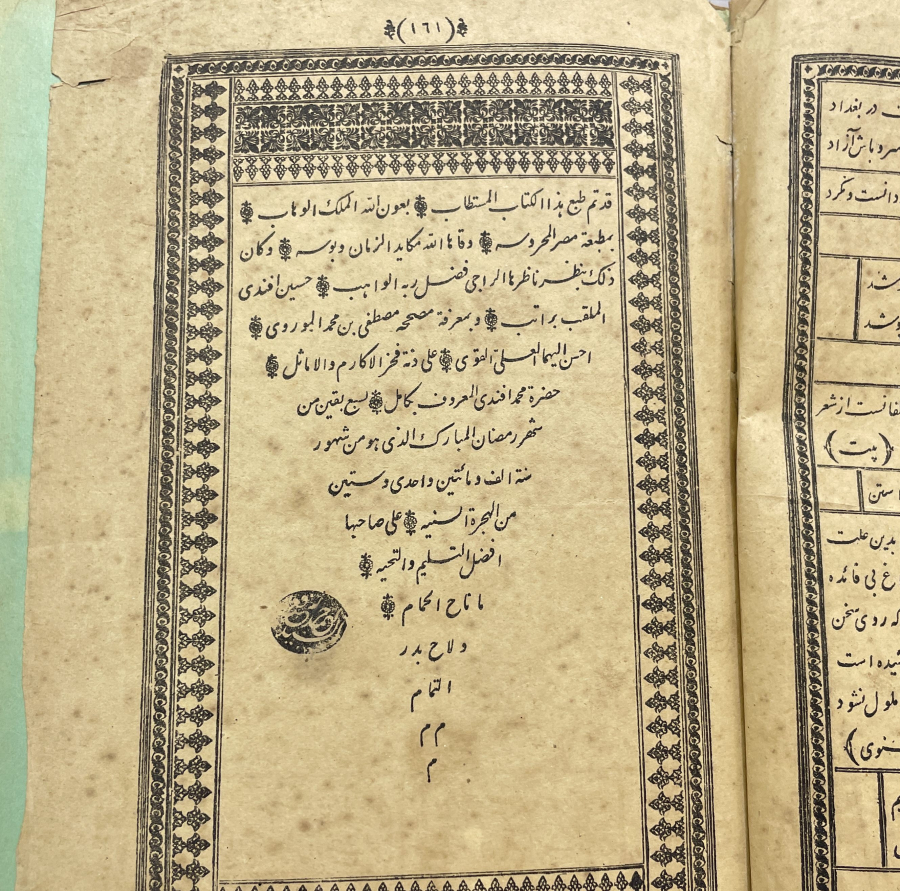 (١٦١)
قد تم طبع هذا الكتاب المستطاب بعون الله الملك الوهاب
بمطبعة مصر المحروسه وقاها الله مكايد الزمان وبوسه وكان
ذلك بنظر ناظرها الراجى فضل ربه الواهب حسين افندى
الملقب براتب وبمعرفة مصححه مصطفى بن محمد البوروى
احسن اليهما العلى القوى على ذمة فخر الاكارم والاماثل
حضرة محمد افندى المعروف بكامل لسبع بقين من
شهر رمضان المبارك الذى هو من شهور
سنة الف ومائتين واحدى وستين
من الهجرة السنيه على صاحبها
افضل التسليم والتحيه
ما ناح الحمام
ولاح بدر
التمام
م م
م
در بغداد
سرو باش آزاد
دانست و نكرد
شعر
(بيت)
بدين علت
غ بى فائده
كه روى سخن
شيده است
ملول نشود